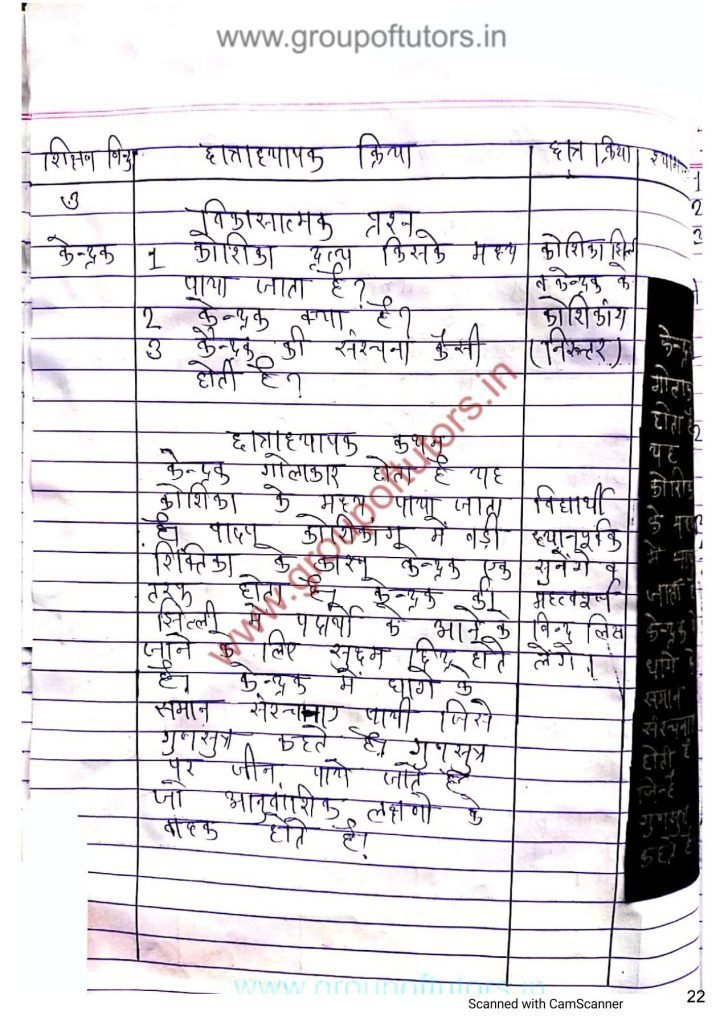 www.groupoftutors.in
शिक्षण बिन्दु छात्राध्यापक क्रिया छात्र क्रिया
3
विकासात्मक प्रश्न
केन्द्रक 1 कोशिका द्रव्य किसके मध्य कोशिका झिल्ली
पाया जाता है? व केन्द्रक के
2 केन्द्रक क्या है? कोशिकांग
3 केन्द्रक की संरचना कैसी (निरुत्तर)
होती है?
छात्राध्यापक कथन
केन्द्रक गोलाकार होता है यह
कोशिका के मध्य पाया जाता विद्यार्थी
है। पादप में बड़ी ध्यानपूर्वक
के कारण केन्द्रक एक सुनेंगे व
तरफ होता है। केन्द्रक की महत्वपूर्ण
झिल्ली में पदार्थो के आने के बिन्दु लिख
जाने के लिए सूक्ष्म छिद्र होते लेंगे।
है। केन्द्रक में धागे के
समान पायी जिसे
गुणसुत्र कहते है। गुणसुत्र
पर जीन पाये जाते है
जो आनुवांशिक लक्षणो के
वाहक होते है।
केन्द्रक
गोलाकार
होता है
यह
कोशिका
के मध्य
में पाया
जाता है
केन्द्रक
धागे के
समान
संरचना
होती है
जिन्हें
गुणसुत्र
कहते है
www.groupoftutors.in
www.groupoftutors.in
Scanned with CamScanner
22